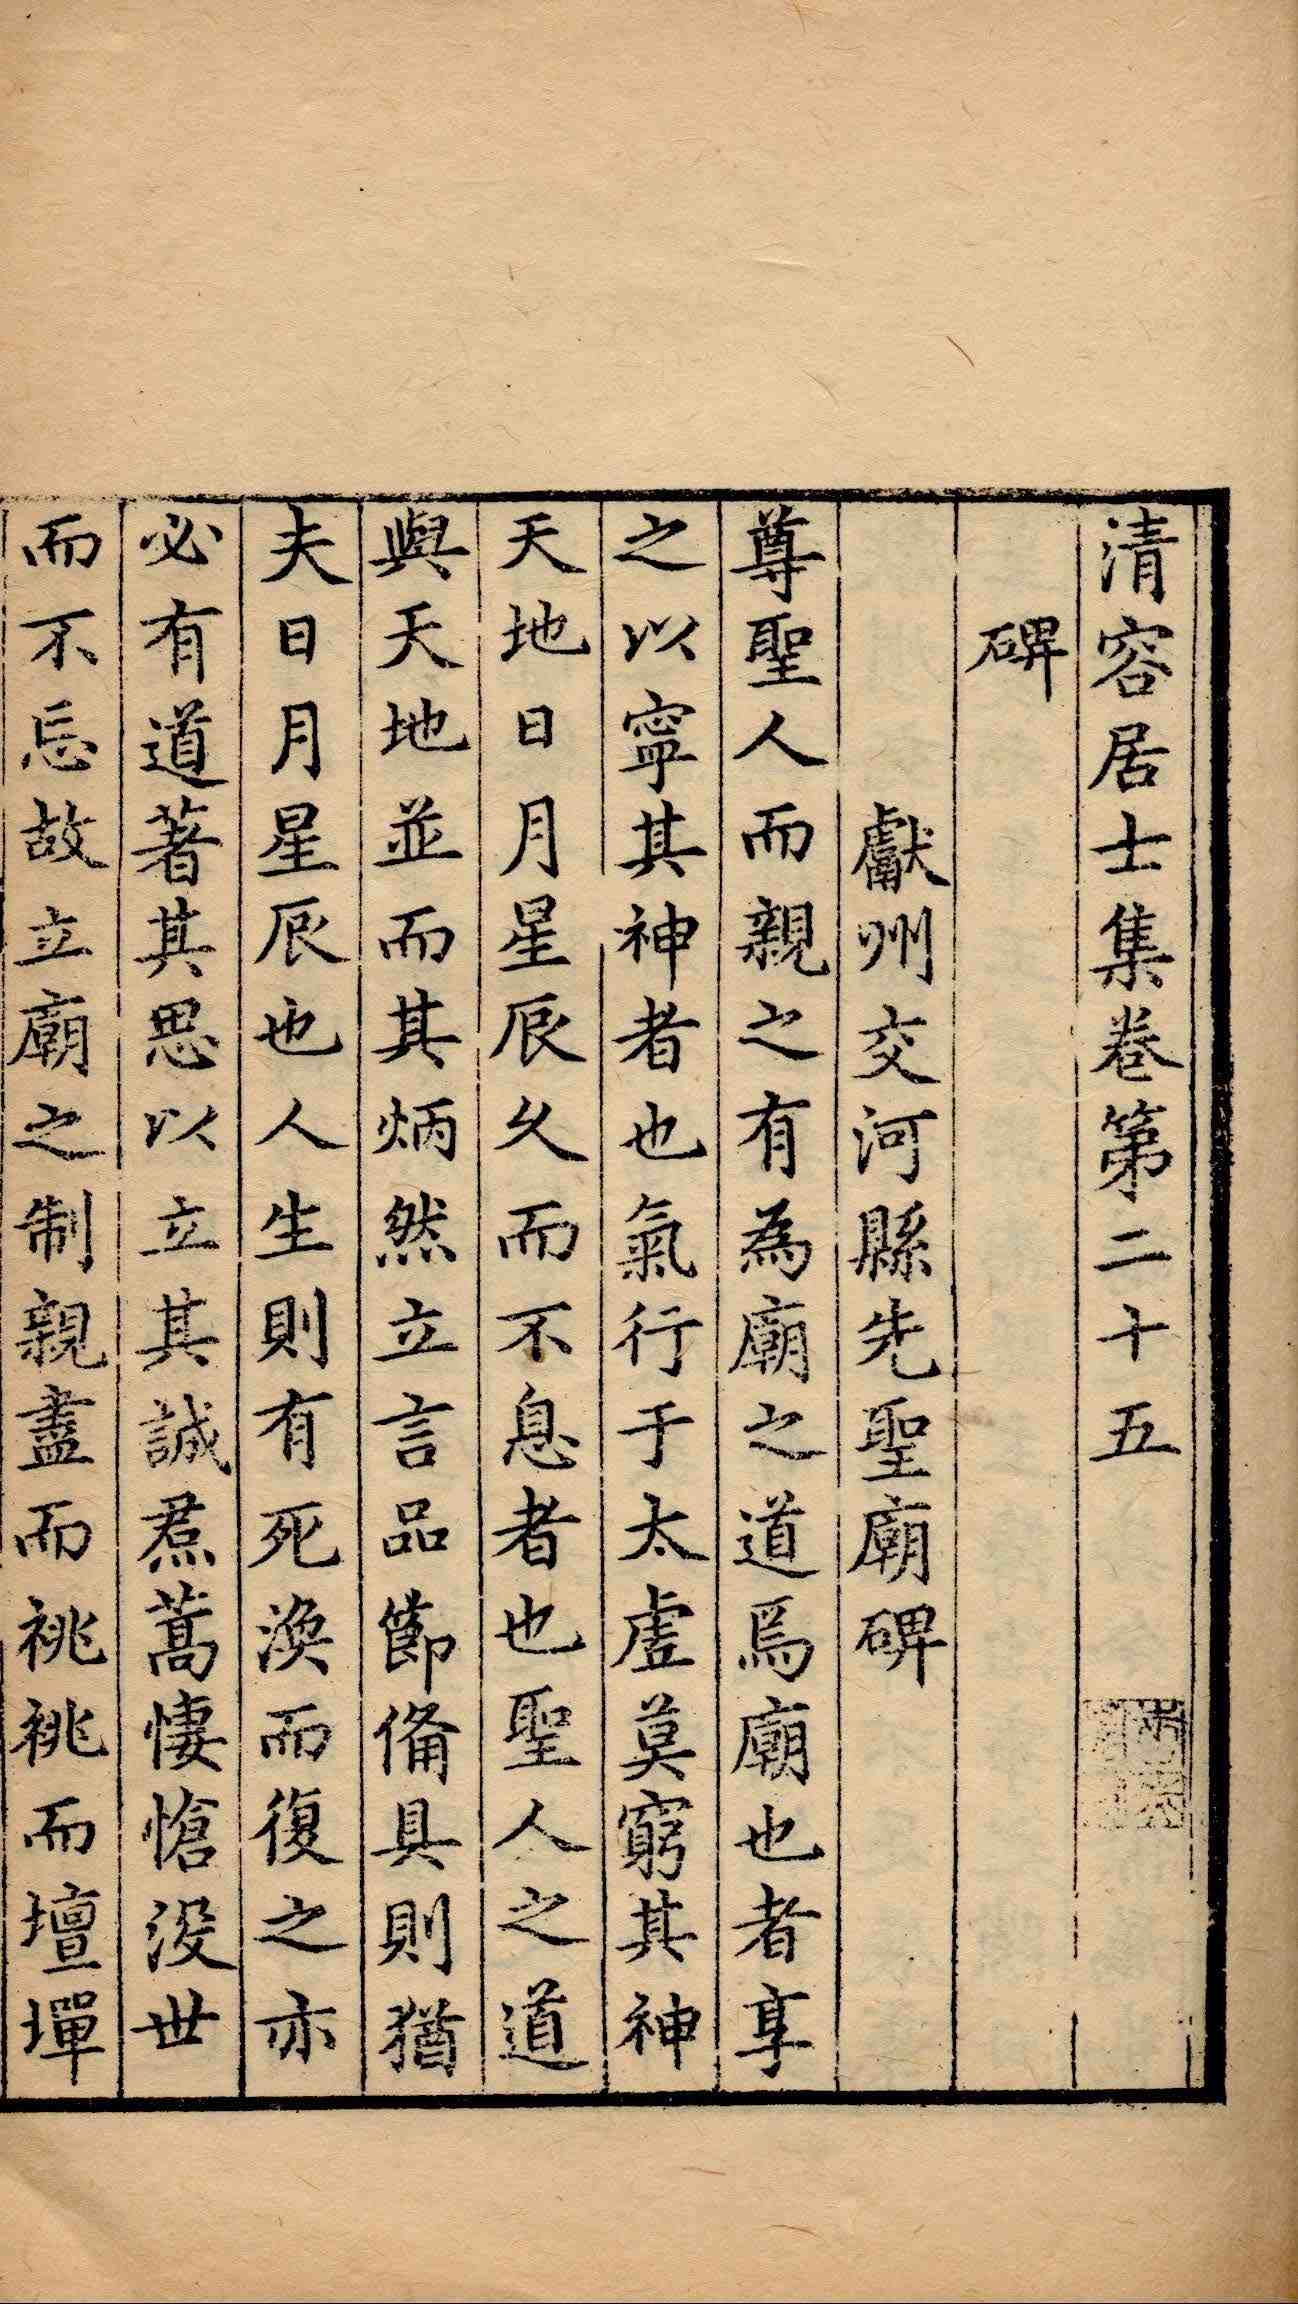 清容居士集卷第二十五
碑
獻州交河縣先聖廟碑
尊聖人而親之有為廟之道焉廟也者享
之以寧其神者也氣行于太虛莫窮其神
天地日月星辰久而不息者也聖人之道
與天地並而其炳然立言品節備具則猶
夫日月星辰也人生則有死渙而復之亦
必有道著其思以立其誠焄蒿悽愴沒世
而不忘故立廟之制親盡而祧祧而壇墠